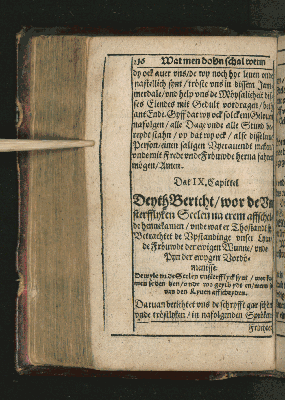 136 Wat men dohn schal wenn
dy ock auer vns/de wy noch hyr leuen vnde
nastellich synt/tröste vns in dissem Jam-
merdale/vnd help vns de Möysalicheit dis-
ses Elendes mit Gedult vordragen/beth
ant Ende. Gyff dat wy ock solckem Gelouen
nafolgen/alle Dage vnde alle Stund be-
reydt stahn/vp dat wy ock/alse disse
Person/einen saligen
vnde mit Frede vnd Fröuwde herna fahren
mögen/Amen.
Dat IX. Capittel
Deyth Bericht/wor de Vn-
sterfflyken Seelen na erem affscheide
de hennekamen/vnde wat er Thostandt
Betrachtet de Vpstandinge vnser Lyue
de Fröuwde der ewigen Wunne/vnde
Pyn der ewygen Vordö-
menisse.
Dewyle nu de Seelen vnsterfflyck synt/wor
van den Lyuen affscheyden.
Daruan berichtet vns de schrifft gar schön
vnde tröstlyken/in nafolgenden Spröken